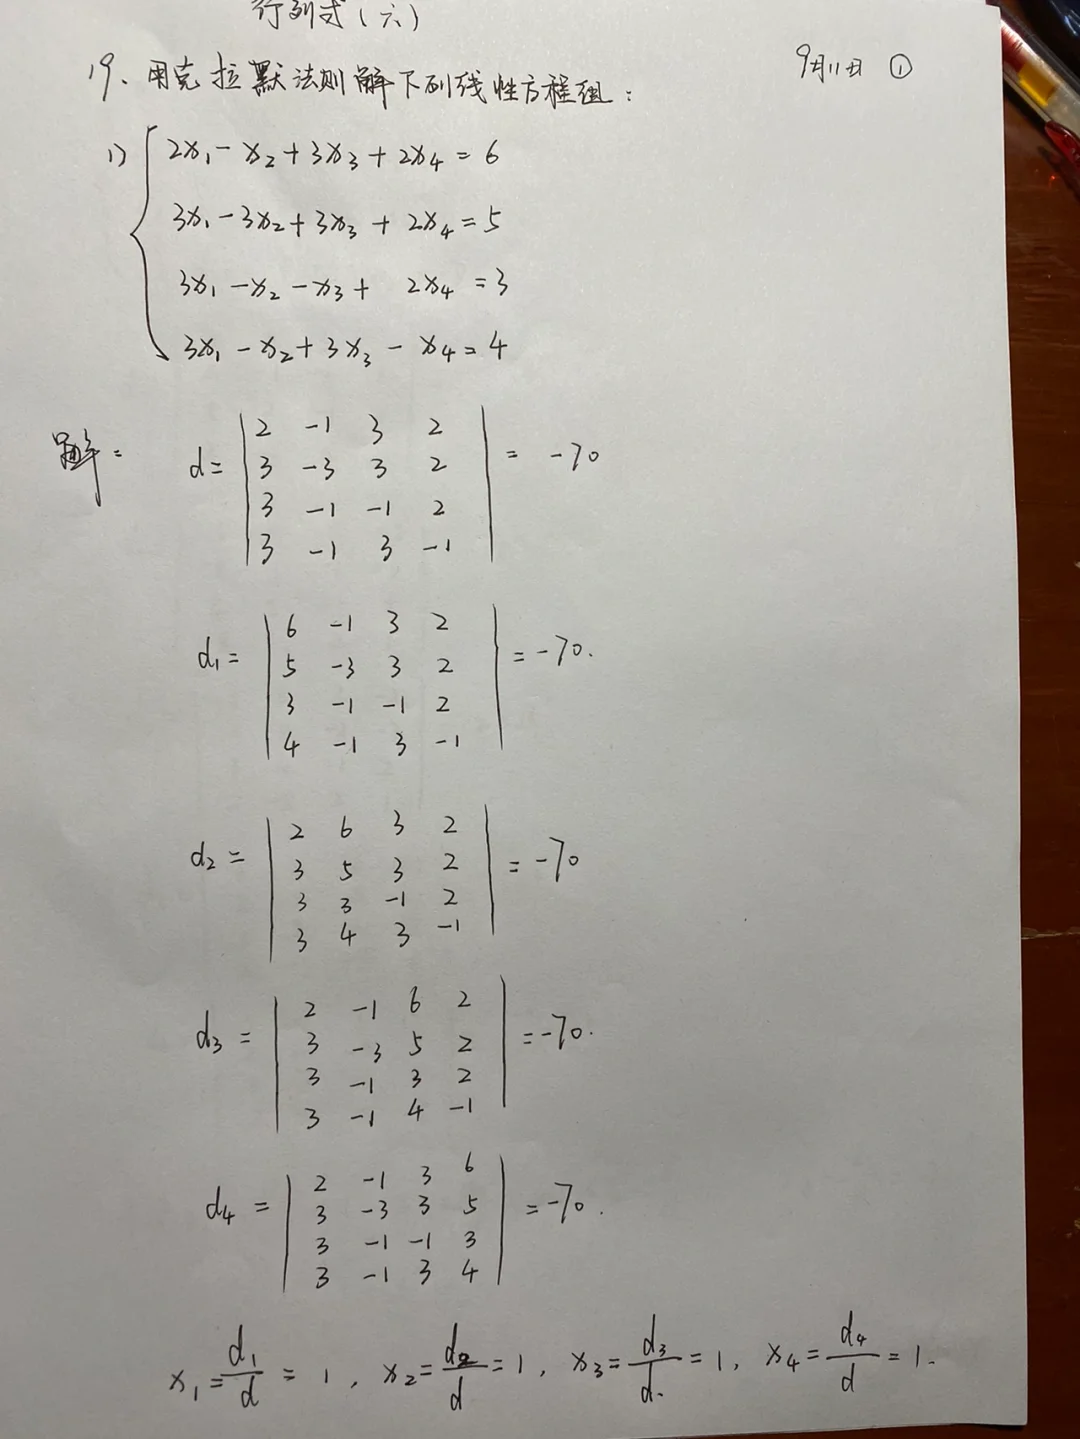 行列式(六)
9月11日 ①
19、用克拉默法则解下列线性方程组:
1) { 2x₁ - x₂ + 3x₃ + 2x₄ = 6
3x₁ - 3x₂ + 3x₃ + 2x₄ = 5
3x₁ - x₂ - x₃ + 2x₄ = 3
3x₁ - x₂ + 3x₃ - x₄ = 4
解: d = | 2 -1 3 2 | = -70
3 -3 3 2
3 -1 -1 2
3 -1 3 -1
d₁ = | 6 -1 3 2 | = -70.
5 -3 3 2
3 -1 -1 2
4 -1 3 -1
d₂ = | 2 6 3 2 | = -70
3 5 3 2
3 3 -1 2
3 4 3 -1
d₃ = | 2 -1 6 2 | = -70.
3 -3 5 2
3 -1 3 2
3 -1 4 -1
d₄ = | 2 -1 3 6 | = -70.
3 -3 3 5
3 -1 -1 3
3 -1 3 4
x₁ = d₁/d = 1, x₂ = d₂/d = 1, x₃ = d₃/d. = 1, x₄ = d₄/d = 1.